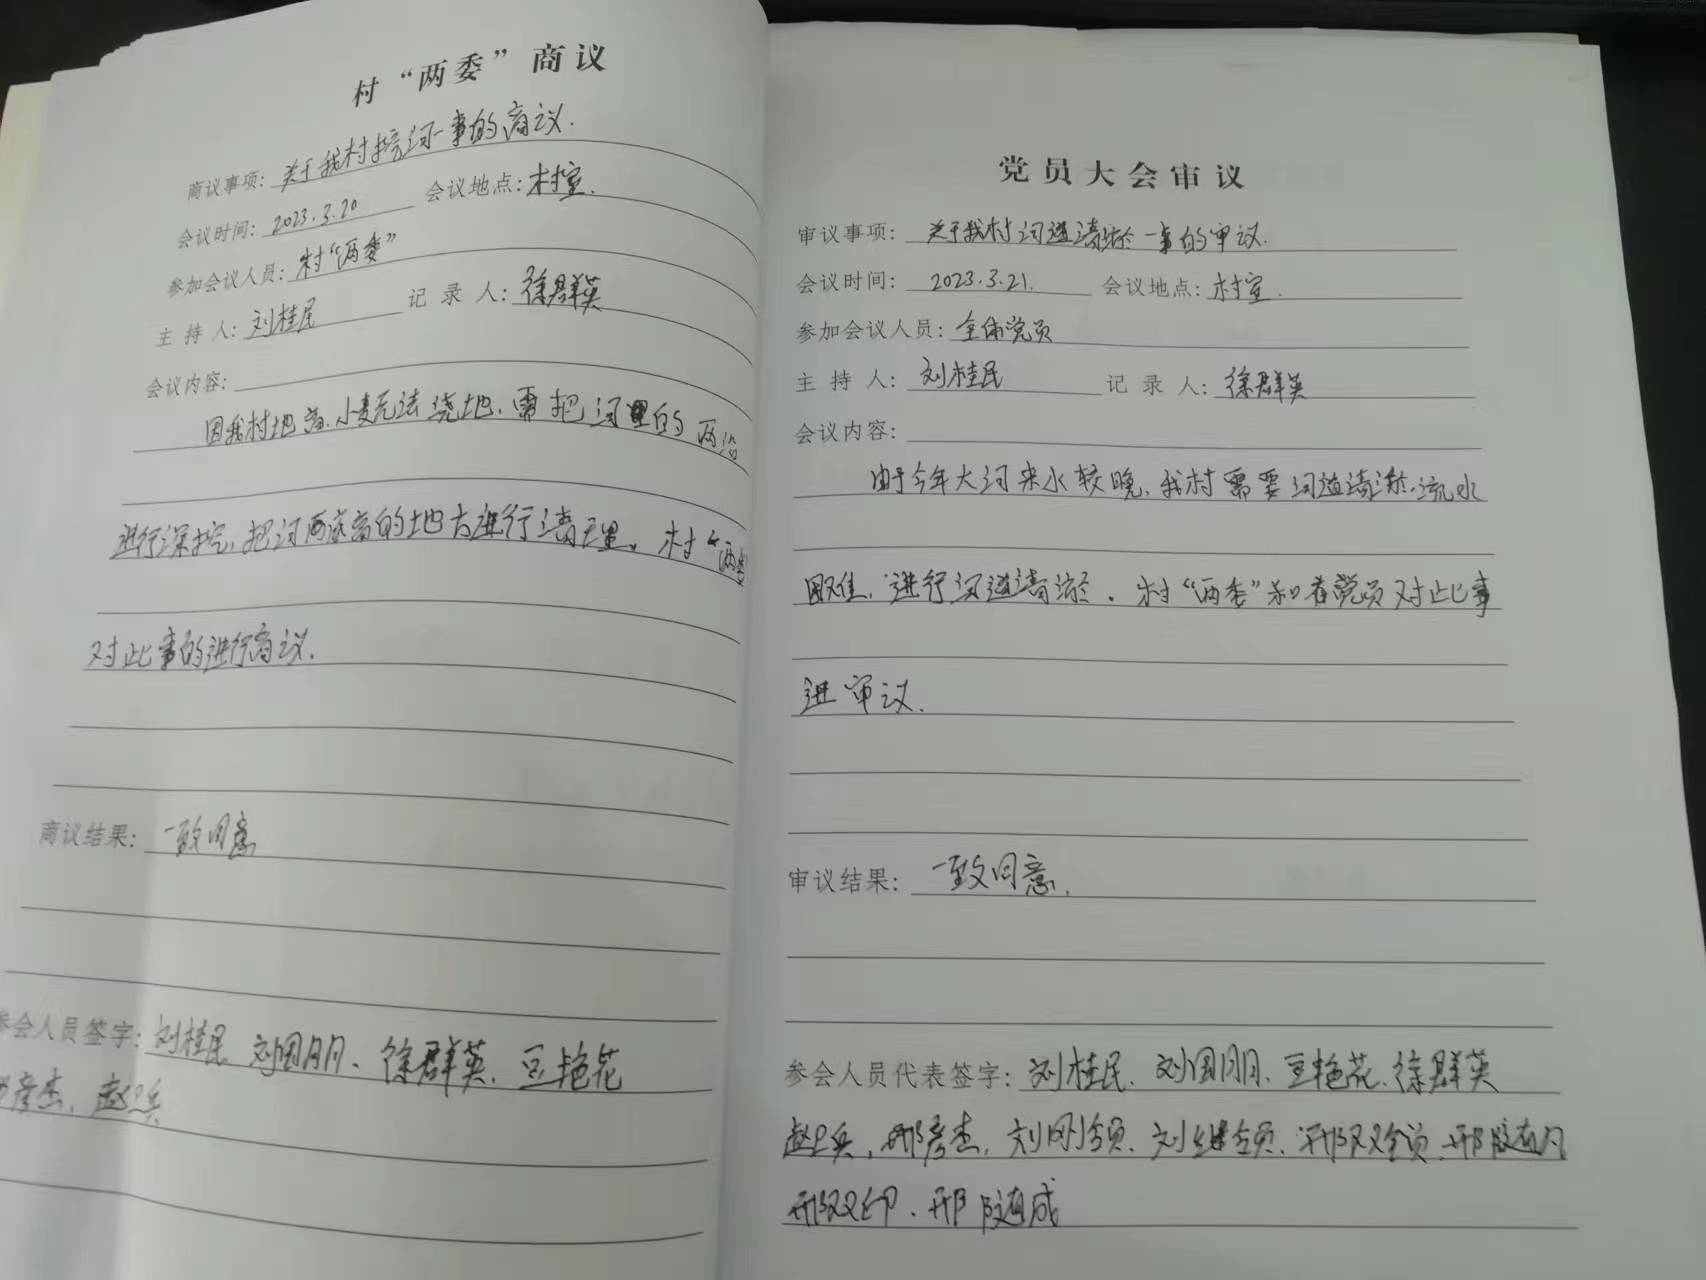 村“两委”商议
商议事项：关于我村挖河一事的商议.
会议时间：2023.3.20 会议地点：村室.
参加会议人员：村“两委”
主持人：刘桂民 记录人：徐群英
会议内容：
因我村地高.小麦无法浇地.需把河里的两沿
进行深挖,把河两底高的地方进行清理。村“两委
对此事的进行商议.
商议结果：一致同意
参会人员签字：刘桂民 刘国朋、徐群英.豆艳花
彦杰.赵卫兵
党员大会审议
审议事项：关于我村河道清淤一事的审议.
会议时间：2023.3.21. 会议地点：村室.
参加会议人员：全体党员
主持人：刘桂民 记录人：徐群英
会议内容：
由于今年大河来水较晚,我村需要河道清淤.流水
困难,进行河道清淤。村“两委”和各党员对此事
进审议.
审议结果：一致同意.
参会人员代表签字：刘桂民.刘国朋.豆艳花.徐群英
赵卫兵,邢彦杰.刘刚领.刘继领.邢双全.邢随
邢双印.邢随成